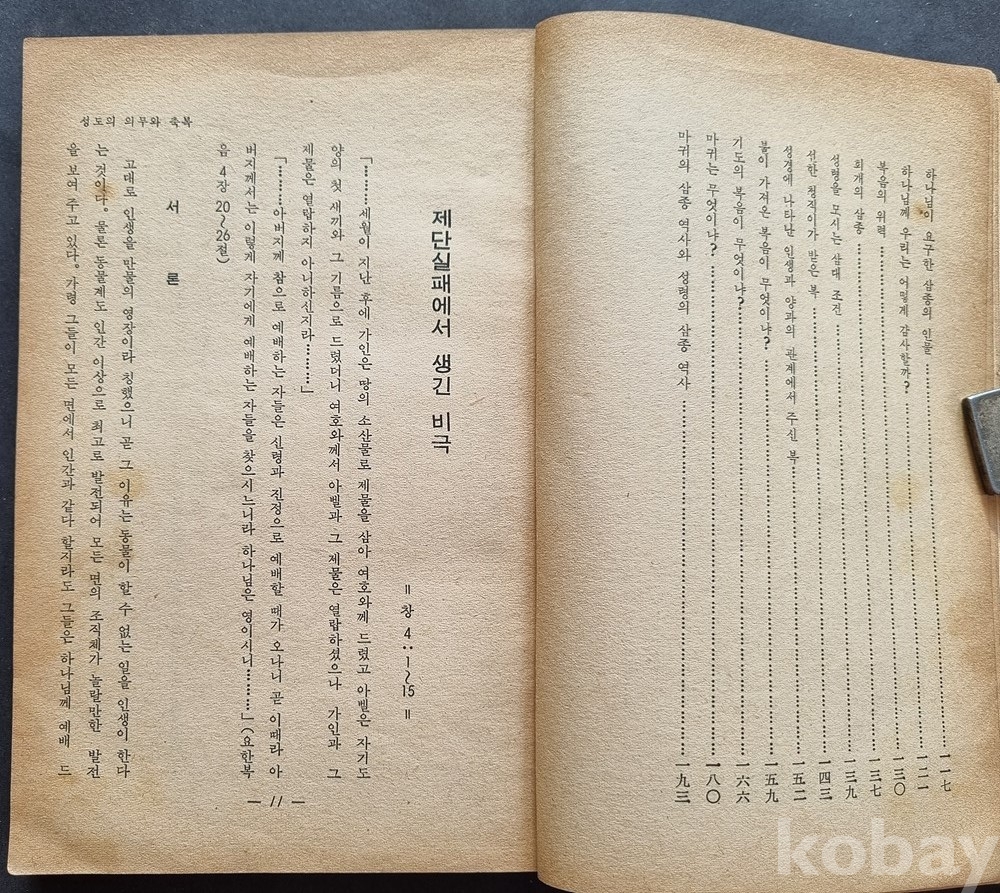 하나님이 요구한 삼종의 인물 …… 一一七
하나님께 우리는 어떻게 감사할까? …… 一二一
복음의 위력 …… 一三〇
회개의 삼종 …… 一三七
성령을 모시는 삼대 조건 …… 一三九
선한 청직이가 받은 복 …… 一四三
성경에 나타난 인생과 양과의 관계에서 주신 복 …… 一五二
불이 가져온 복음이 무엇이냐? …… 一五九
기도의 복음이 무엇이냐? …… 一六六
마귀는 무엇이냐? …… 一八〇
마귀의 삼종 역사와 성령의 삼종 역사 …… 一九三
제단실패에서 생긴 비극
= 창 4:1~15 =
「………세월이 지난 후에 가인은 땅의 소산물로 제물을 삼아 여호와께 드렸고 아벨은 자기도
양의 첫 새끼와 그 기름으로 드렸더니 여호와께서 아벨과 그 제물은 열랍하셨으나 가인과 그
제물은 열랍하지 아니하신지라………」
「………아버지께 참으로 예배하는 자들은 신령과 진정으로 예배할 때가 오나니 곧 이때라 아
버지께서는 이렇게 자기에게 예배하는 자들을 찾으시느니라 하나님은 영이시니………」(요한복
음 4장 20~26절)
서론
고대로 인생을 만물의 영장이라 칭했으니 곧 그 이유는 동물이 할 수 없는 일을 인생이 한다
는 것이다. 물론 동물계도 인간 이상으로 최고로 발전되어 모든 면의 조직체가 놀랄만한 발전
을 보여 주고 있다. 가령 그들이 모든 면에서 인간과 같다 할지라도 그들은 하나님께 예배 드
성도의 의무와 축복
— 11 —
kobay